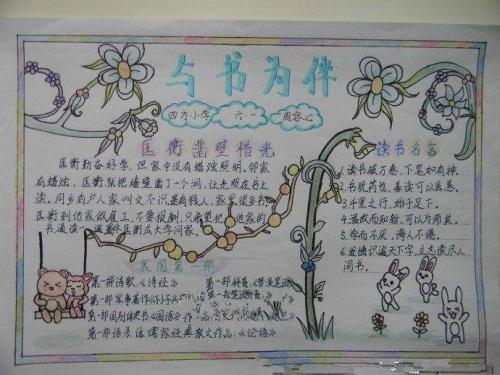 与书为伴
四方小学 六·二 周容心
匡衡凿壁借光
匡衡勤奋好学，但家中没有蜡烛照明。邻家
有蜡烛，匡衡就把墙壁凿了一个洞，让光照在书上
读。同乡有户人家叫文不识是有钱人，家里很多书
匡衡到他家做雇工，不要报酬，只希望把他家的
书通读一遍。最终匡衡成大学问家。
读书名言
1.读书破万卷，下笔如有神。
2.书犹药也，善读可以医愚。
3.千里之行，始于足下。
4.温故而知新，可以为师矣。
5.学而不厌，诲人不倦。
6.发愤识遍天下字，立志读尽人
间书。
我国第一部
第一部诗歌：《诗经》
第一部军事著作《孙子兵
第一部国别体史书《国语》
第一部语录体儒家经典散文作品：《论语》